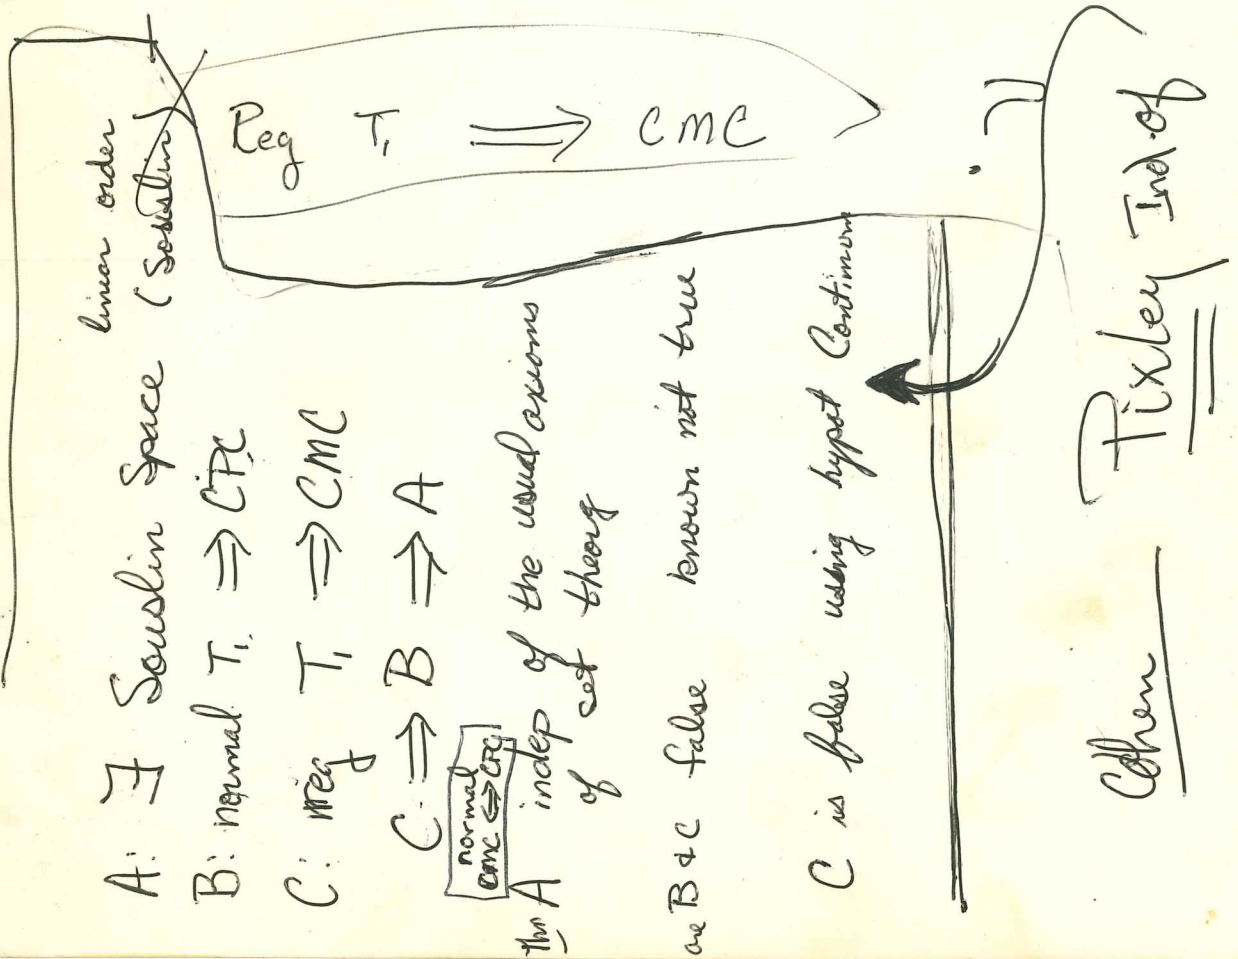 A: ∃ Souslin Space
linear order
(Souslin)
B: normal T₁ ⇒ CPC
C: reg T₁ ⇒ CMC
C ⇒ B ⇒ A
normal
CMC ⇔ CPC
thm A indep of the usual axioms
of set theory
are B & C false known not true
C is false using hypot Continuum
Reg T₁ ⇒ CMC
Cohen Pixley Ind. of